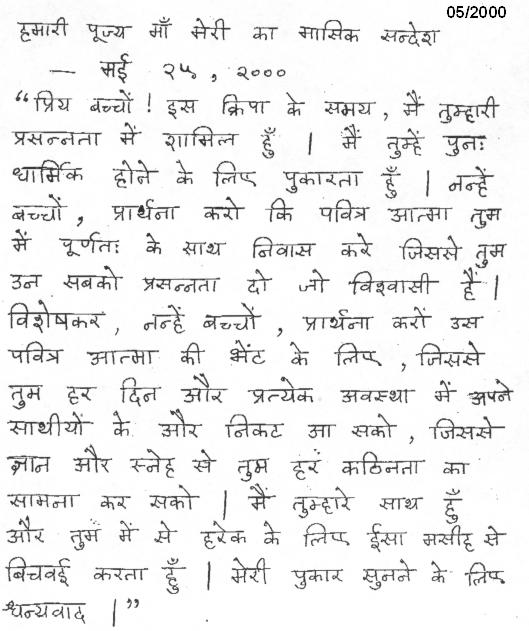 05/2000
हमारी पूज्य माँ मेरी का मासिक सन्देश
— मई २५, २०००
“प्रिय बच्चों! इस क्रिपा के समय, मैं तुम्हारी
प्रसन्नता में शामिल हूँ । मैं तुम्हें पुनः
धार्मिक होने के लिए पुकारता हूँ । नन्हें
बच्चों, प्रार्थना करो कि पवित्र आत्मा तुम
में पूर्णतः के साथ निवास करे जिससे तुम
उन सबको प्रसन्नता दो जो विश्वासी हैं ।
विशेषकर, नन्हें बच्चों, प्रार्थना करों उस
पवित्र आत्मा की भेंट के लिए, जिससे
तुम हर दिन और प्रत्येक अवस्था में अपने
साथीयों के और निकट आ सको, जिससे
ज्ञान और स्नेह से तुम हर कठिनता का
सामना कर सको । मैं तुम्हारे साथ हूँ
और तुम में से हरेक के लिए ईसा मसीह से
बिचवई करता हूँ । मेरी पुकार सुनने के लिए
धन्यवाद ।”